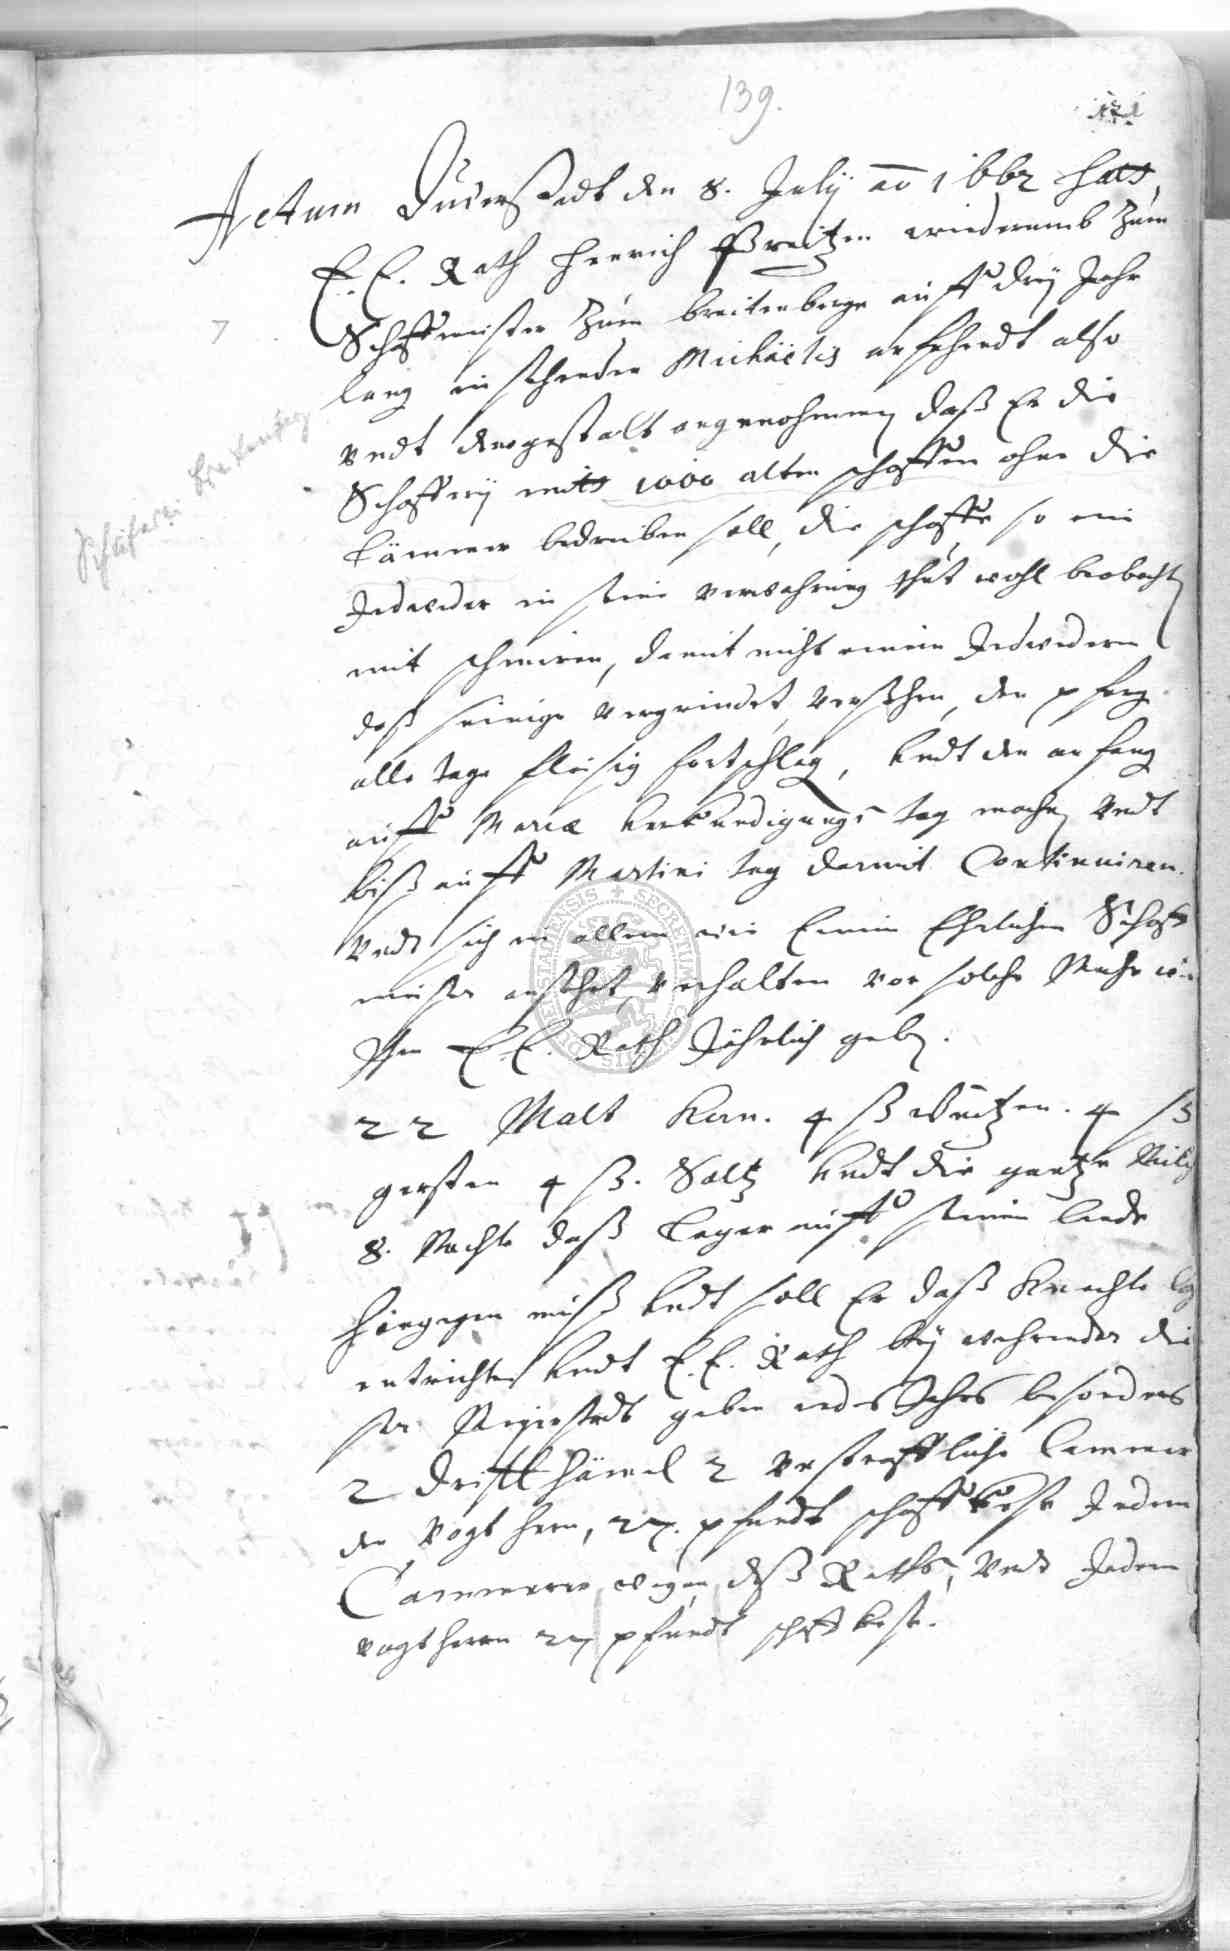 139.
121
Actum Duderstadt den 8. July ao 1662 hatt,
E. E. Rath Henrich Breitzen wiederumb zum
Schaffmeister zum breitenberge auff drey Jahr
lang einstehenden Michäelis anfehendt also
undt dergestalt angenohmen daß Er die
Schafferey mitt 1000 alten schaffen ohne die
Lämmer bedreiben soll, die schaffe so ein
Jedweder in seine verwahrung thut wohl beobachten
mit schmiren, damit nicht einem Jedwedern
daß seinige vergrindet, versehen, den pferg
alle tage fleisig fortschlag, undt den anfang
auff Mariæ verkundigungs tag machen undt
biß auff Martini tag darmit Continuiren.
Undt sich in allem wie Einem Ehrlichen Schaff
meister anstehet, verhalten vor solche Muhe wi
Ihm E. E. Rath Jährlich geben.
22 Malt Korn. 4 ß weitzen. 4 ß
gersten 4 ß. Saltz undt die gantze Milch
8. Nachte daß Leger auff seinem lande
hingegen muß undt soll Er daß Knechte
entrichten undt E. E. Rath bey wehrender die
ser Meierstadt geben iedes Jahrs besonders
2 drifft hämel 2 unstrafflich Lemmer
den Vogt hern, pfundt schaff kese Jedem
Cammerer wegen deß Raths, Undt Jedem
vogt herrn pfundt schaff kese.
Schäferei Breitenberg
SECRETUM